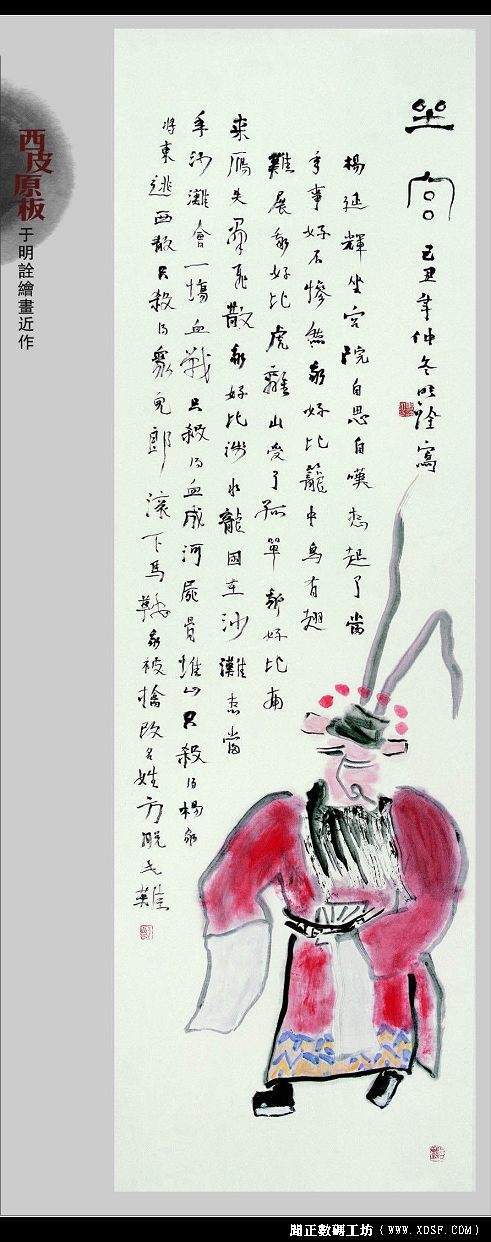 西皮
原板
于明詮繪畫近作
坐宮
己丑年仲冬明詮寫
楊延輝坐宮院自思自嘆想起了當
年事好不慘然我好比籠中鳥有翅
難展我好比虎離山受了孤單我好比南
来雁失羣飛散我好比淺水龍困在沙灘想當
年沙灘會一塲血戰只殺得血成河屍骨堆山只殺得楊家
將東逃西散只殺得眾兒郎滚下馬鞍我被擒改名姓方脫此難
聞正數碼工坊（WWW.XDSF.COM）